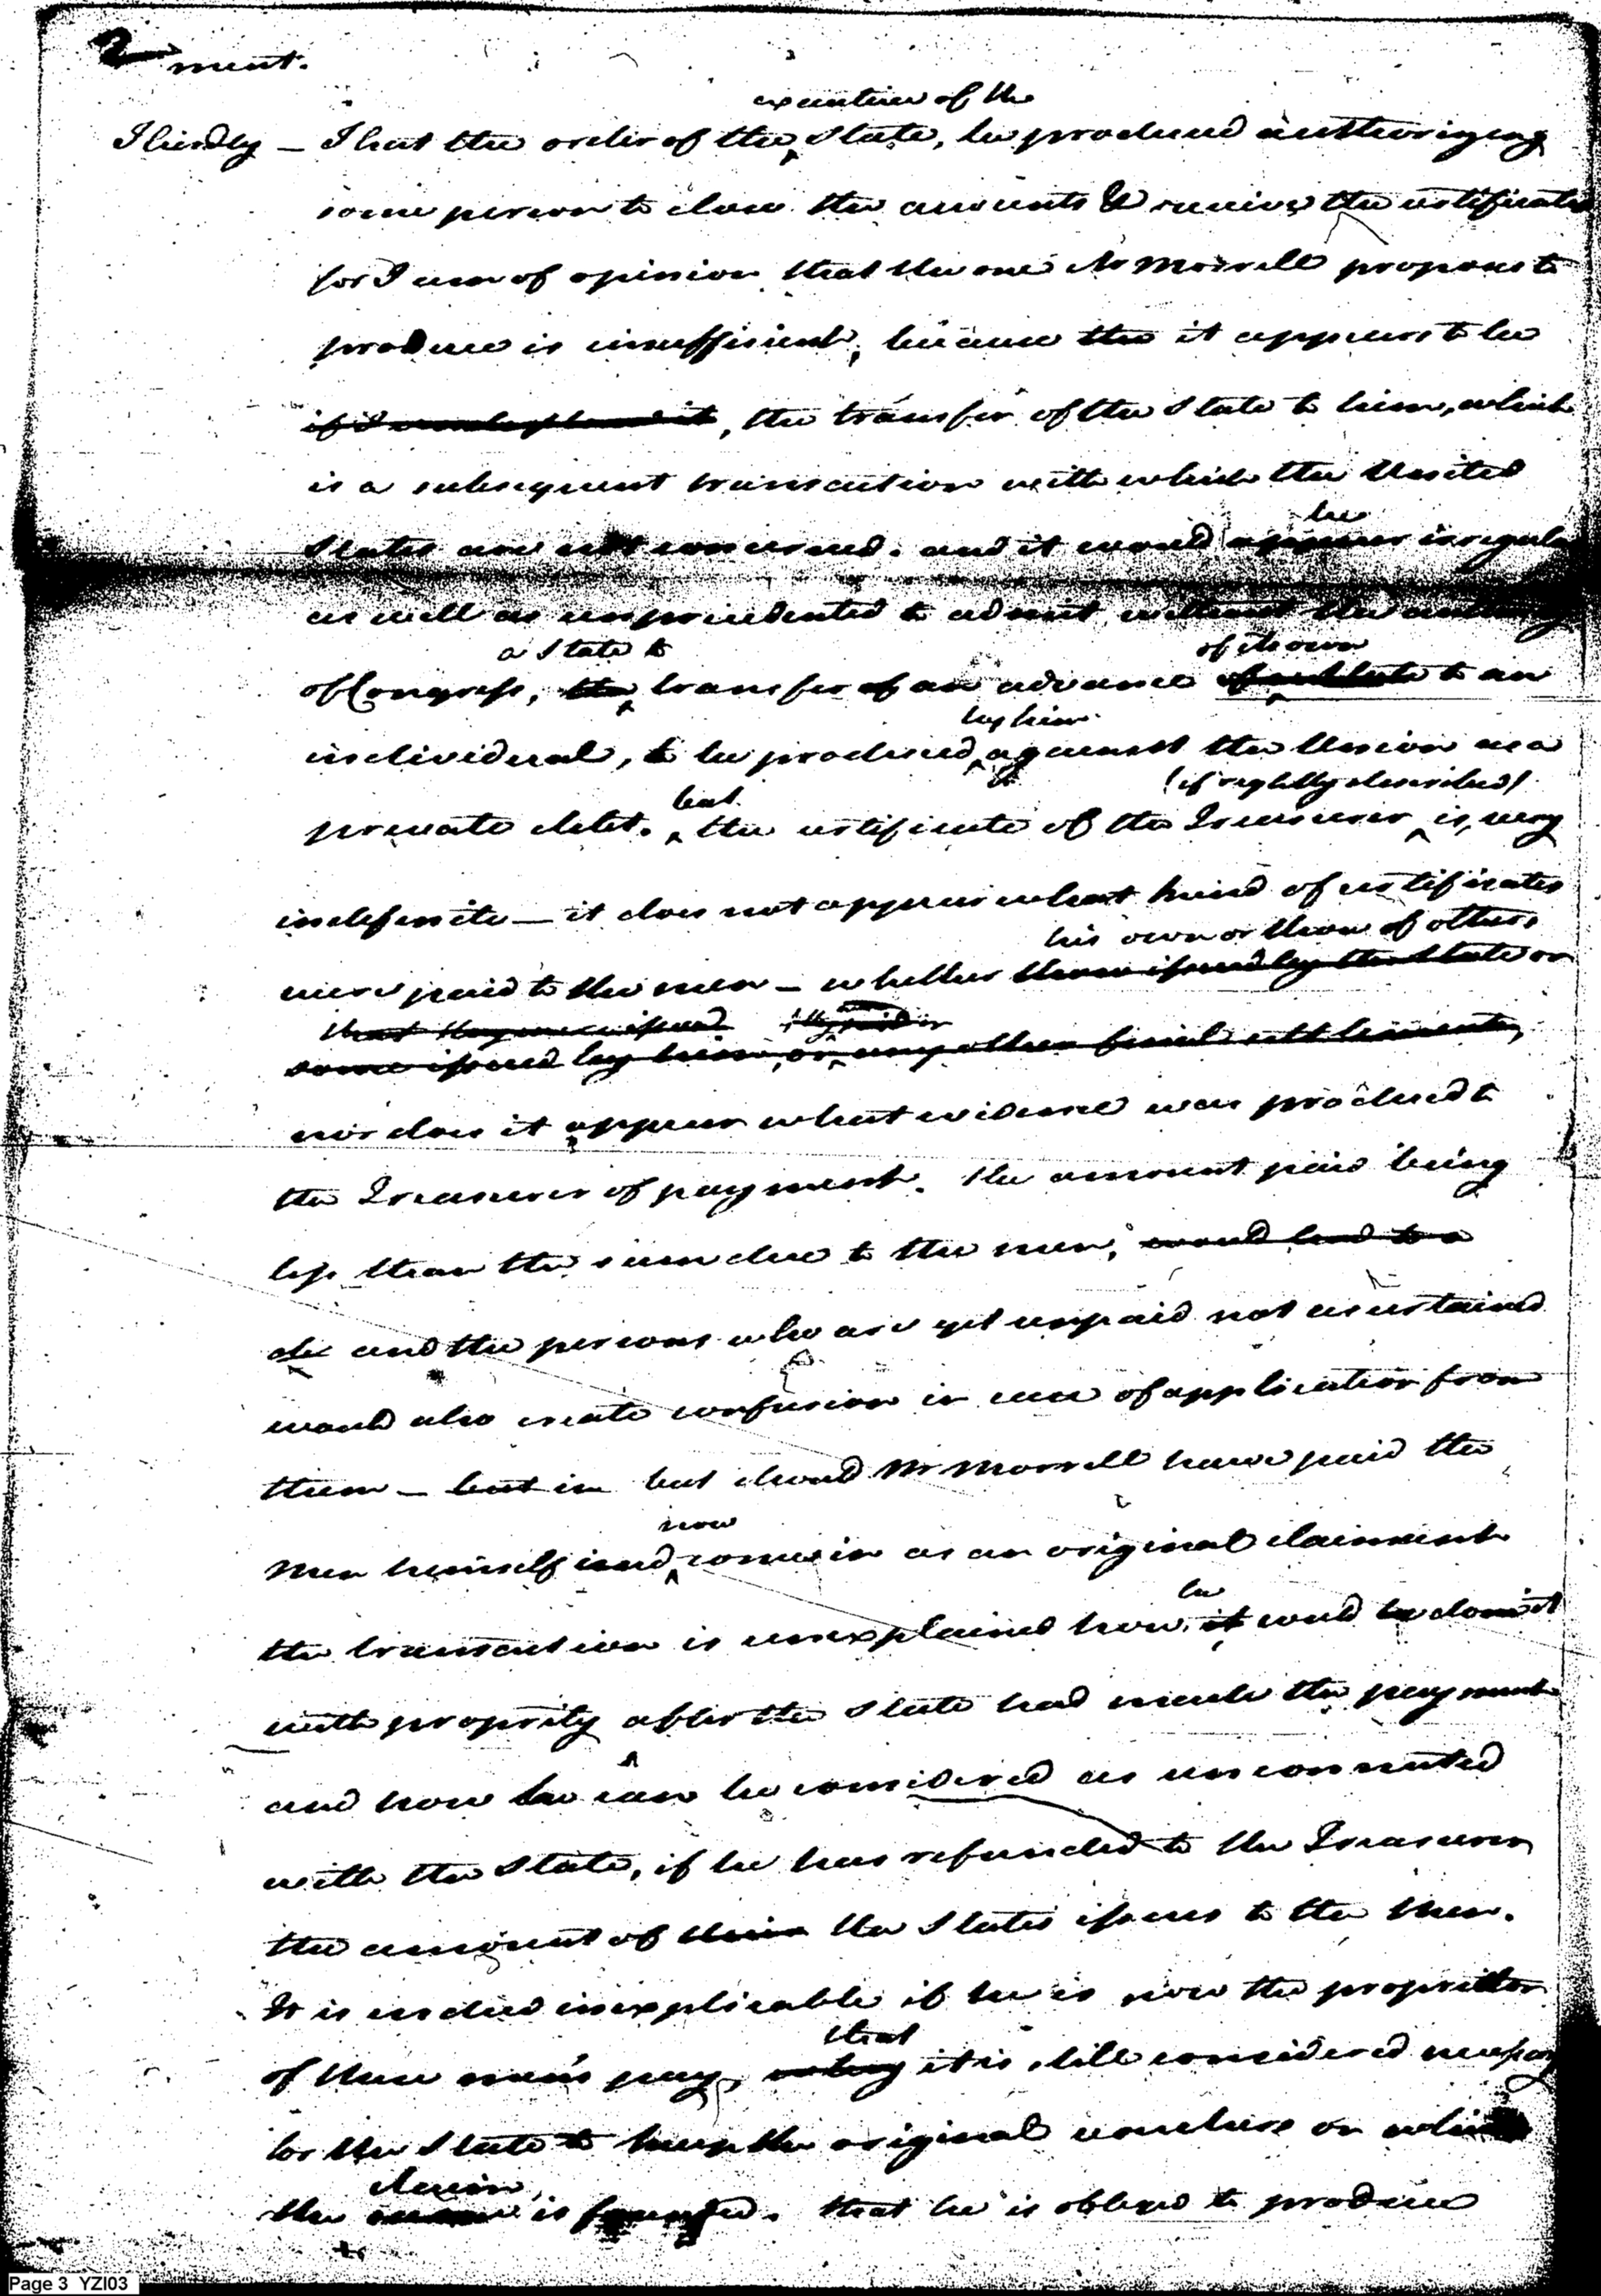 2
ment.
executive of the
Thirdly — That the order of the State, be produced authorizing
some person to close the accounts & receive the certificates
for I am of opinion that the one Mr Morrell proposes to
produce is insufficient, because the it appears to be
the transfer of the State to him, which
is a subsequent transaction with which the United
be
States are not concerned. and it would appear irregular
as well as unprecedented to admit without the authority
a State to of its own
of Congress, the transfer of an advance to an
by him
individual, to be produced against the Union as a
(if rightly described)
but
private debt. the certificate of the Treasurer is, very
indefinite — it does not appear what kind of certificates
his own or those of others
were paid to the men — whether those issued by the State or
that they were issued
some issued by him, or any other final settlements,
nor does it appear what evidence was produced to
the Treasurer of payment. the amount paid being
less than the sum due to the men, would lead to a
de and the persons who are yet unpaid not ascertained
would also create confusion in case of application from
them — but in but should Mr Morrell have paid the
now
Men himself and come in as an original claimant
he
the transaction is unexplained how it could be done it
with propriety after the State had made the payment
and how he can be considered as unconnected
with the State, if he has refunded to the Treasurer
the amount of their the States issues to the Men.
It is indeed inexplicable if he is now the proprietor
that
of these men's pay, it is still considered necessary
for the State to keep the original vouchers on which
claim
the is founded. that he is obliged to produce
Page 3 YZI03